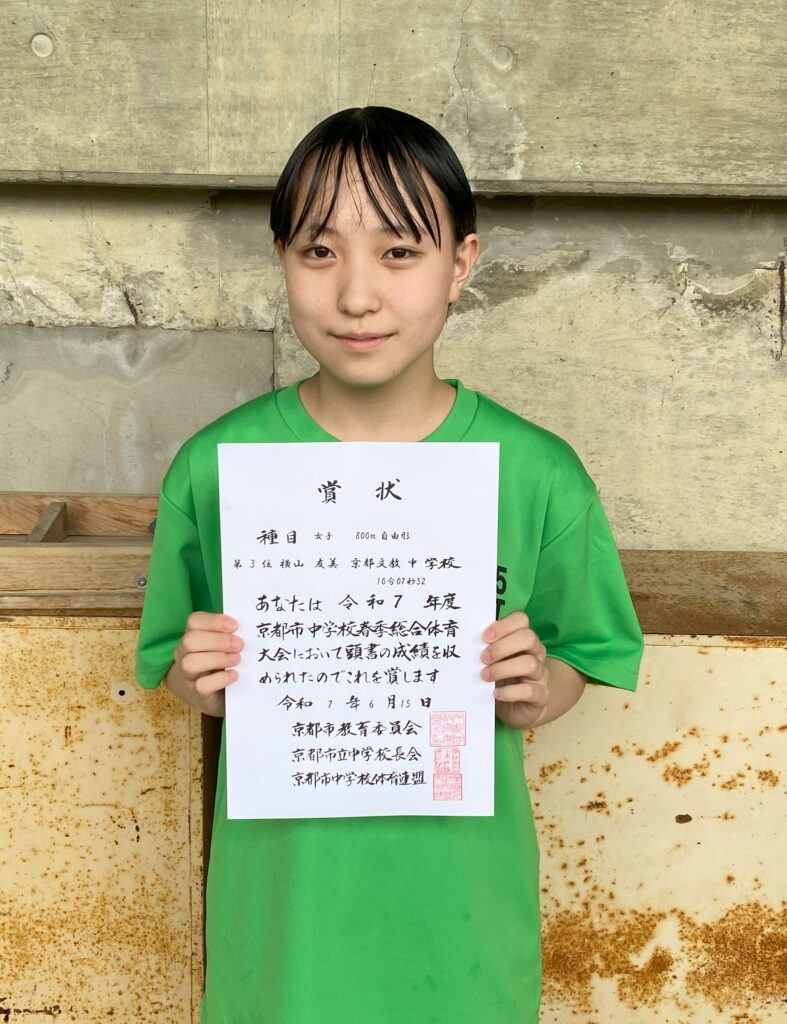 賞 状
種目 女子 800m 自由形
第 3 位 横山 友美 京都文教 中 学校
10分07秒52
あなたは 令和 7 年度
京都市中学校春季総合体育
大会において頭書の成績を収
められたのでこれを賞します
令和 7 年 6 月 15 日
京都市教育委員会
京都市立中学校長会
京都市中学校体育連盟
5